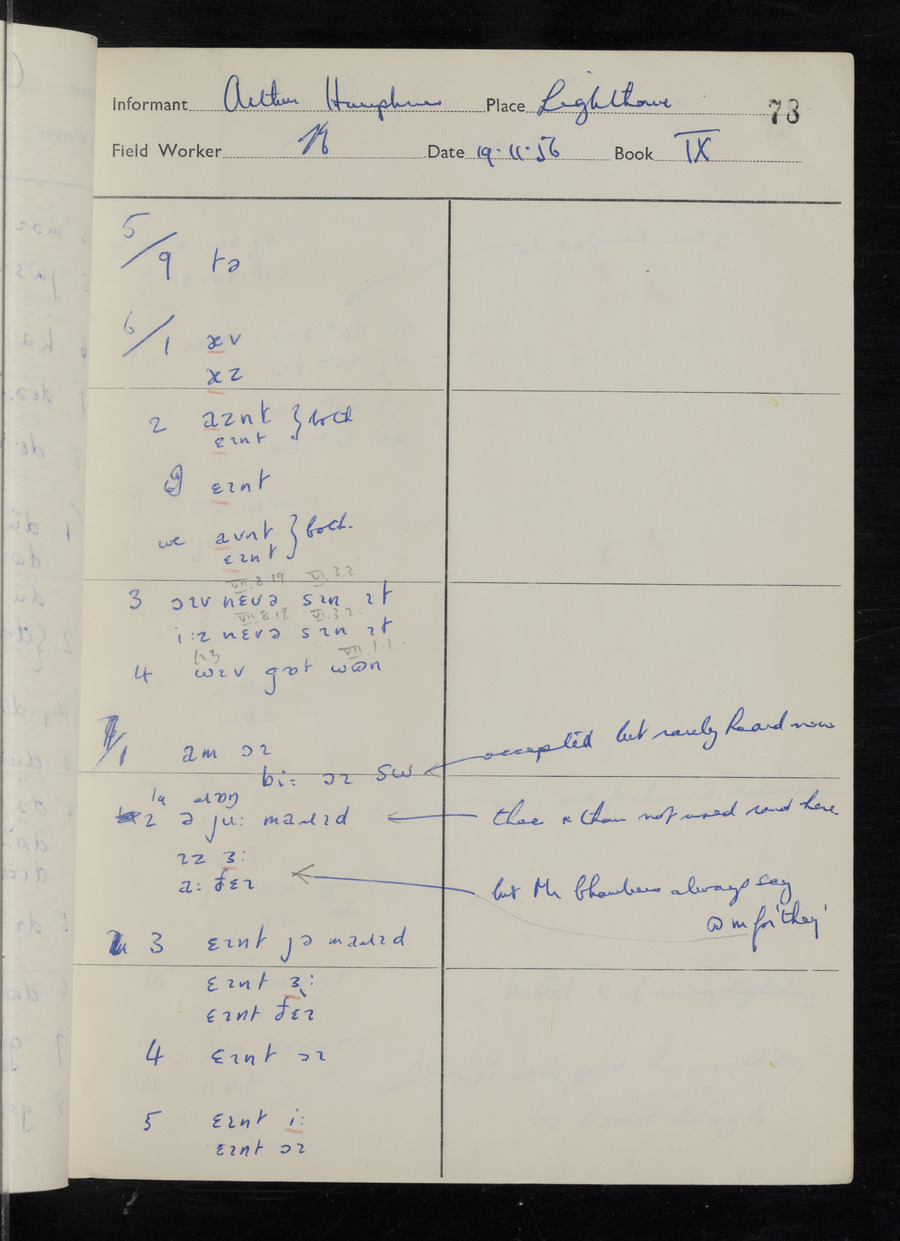 Informant Arthur Humphries Place Lighthorne 73
Field Worker Date 19·11·56 Book IX
5/9 tə
6/1 æv
æz
2 aɪnt } both
ɛɪnt
ɛɪnt
we aɪnt } both.
ɛɪnt
VII.8.19 VI.3.2
3 ɔɪv nɛvə sɪn ɪt
VII.8.19 VI.3.2.
i:z nɛvə sɪn ɪt
VII.1.1.
4 wɪv gɒt
7/1 am ɔɪ
bi: ɔɪ accepted but rarely heard now
2 ə ju: maɹɪd thee & thou not used round here
ɪz ɜ:
a: ðɛɪ but Mr Chambers always say
əm for 'they'
3 ɛɪnt jə maɹɪd
ɛɪnt ɜ:
ɛɪnt ðɛɪ
4 ɛɪnt ɔɪ
5 ɛɪnt i:
ɛɪnt ɔɪ